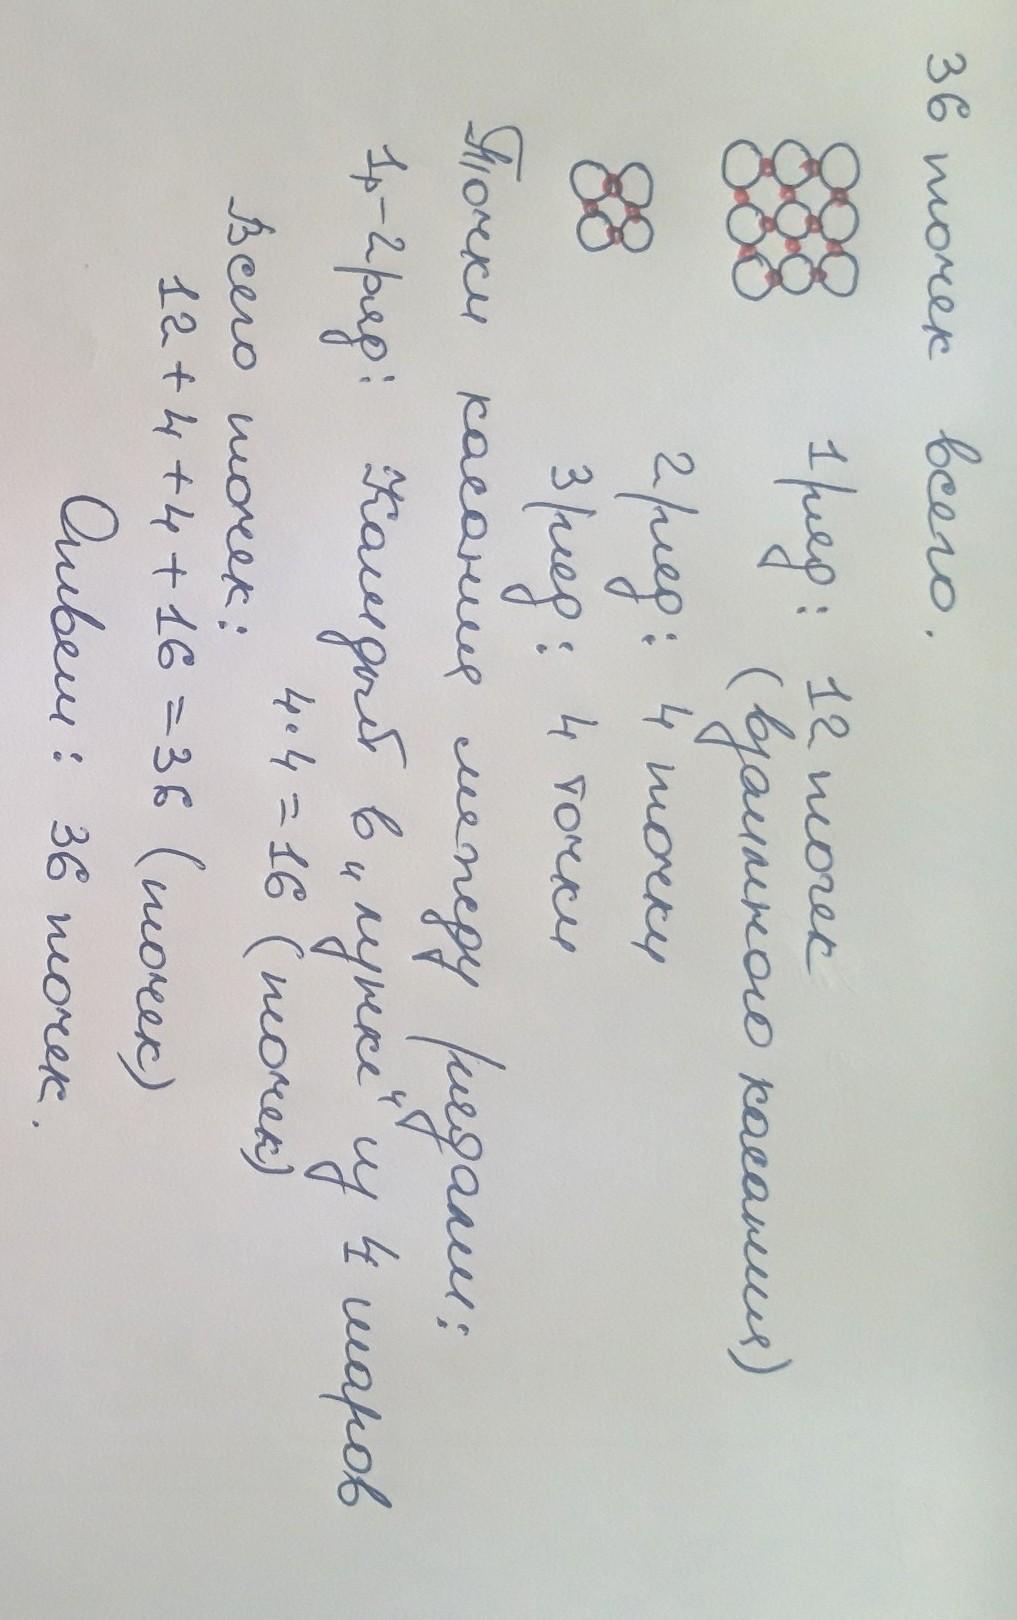 36 точек всего.
1 ряд: 12 точек
(взаимного касания)
2 ряд: 4 точки
3 ряд: 4 точки
Точки касания между рядами:
1,-2 ряд: Каждый в „лунке" из 4 шаров
4·4=16 (точек)
Всего точек:
12+4+4+16=36 (точек)
Ответ: 36 точек.